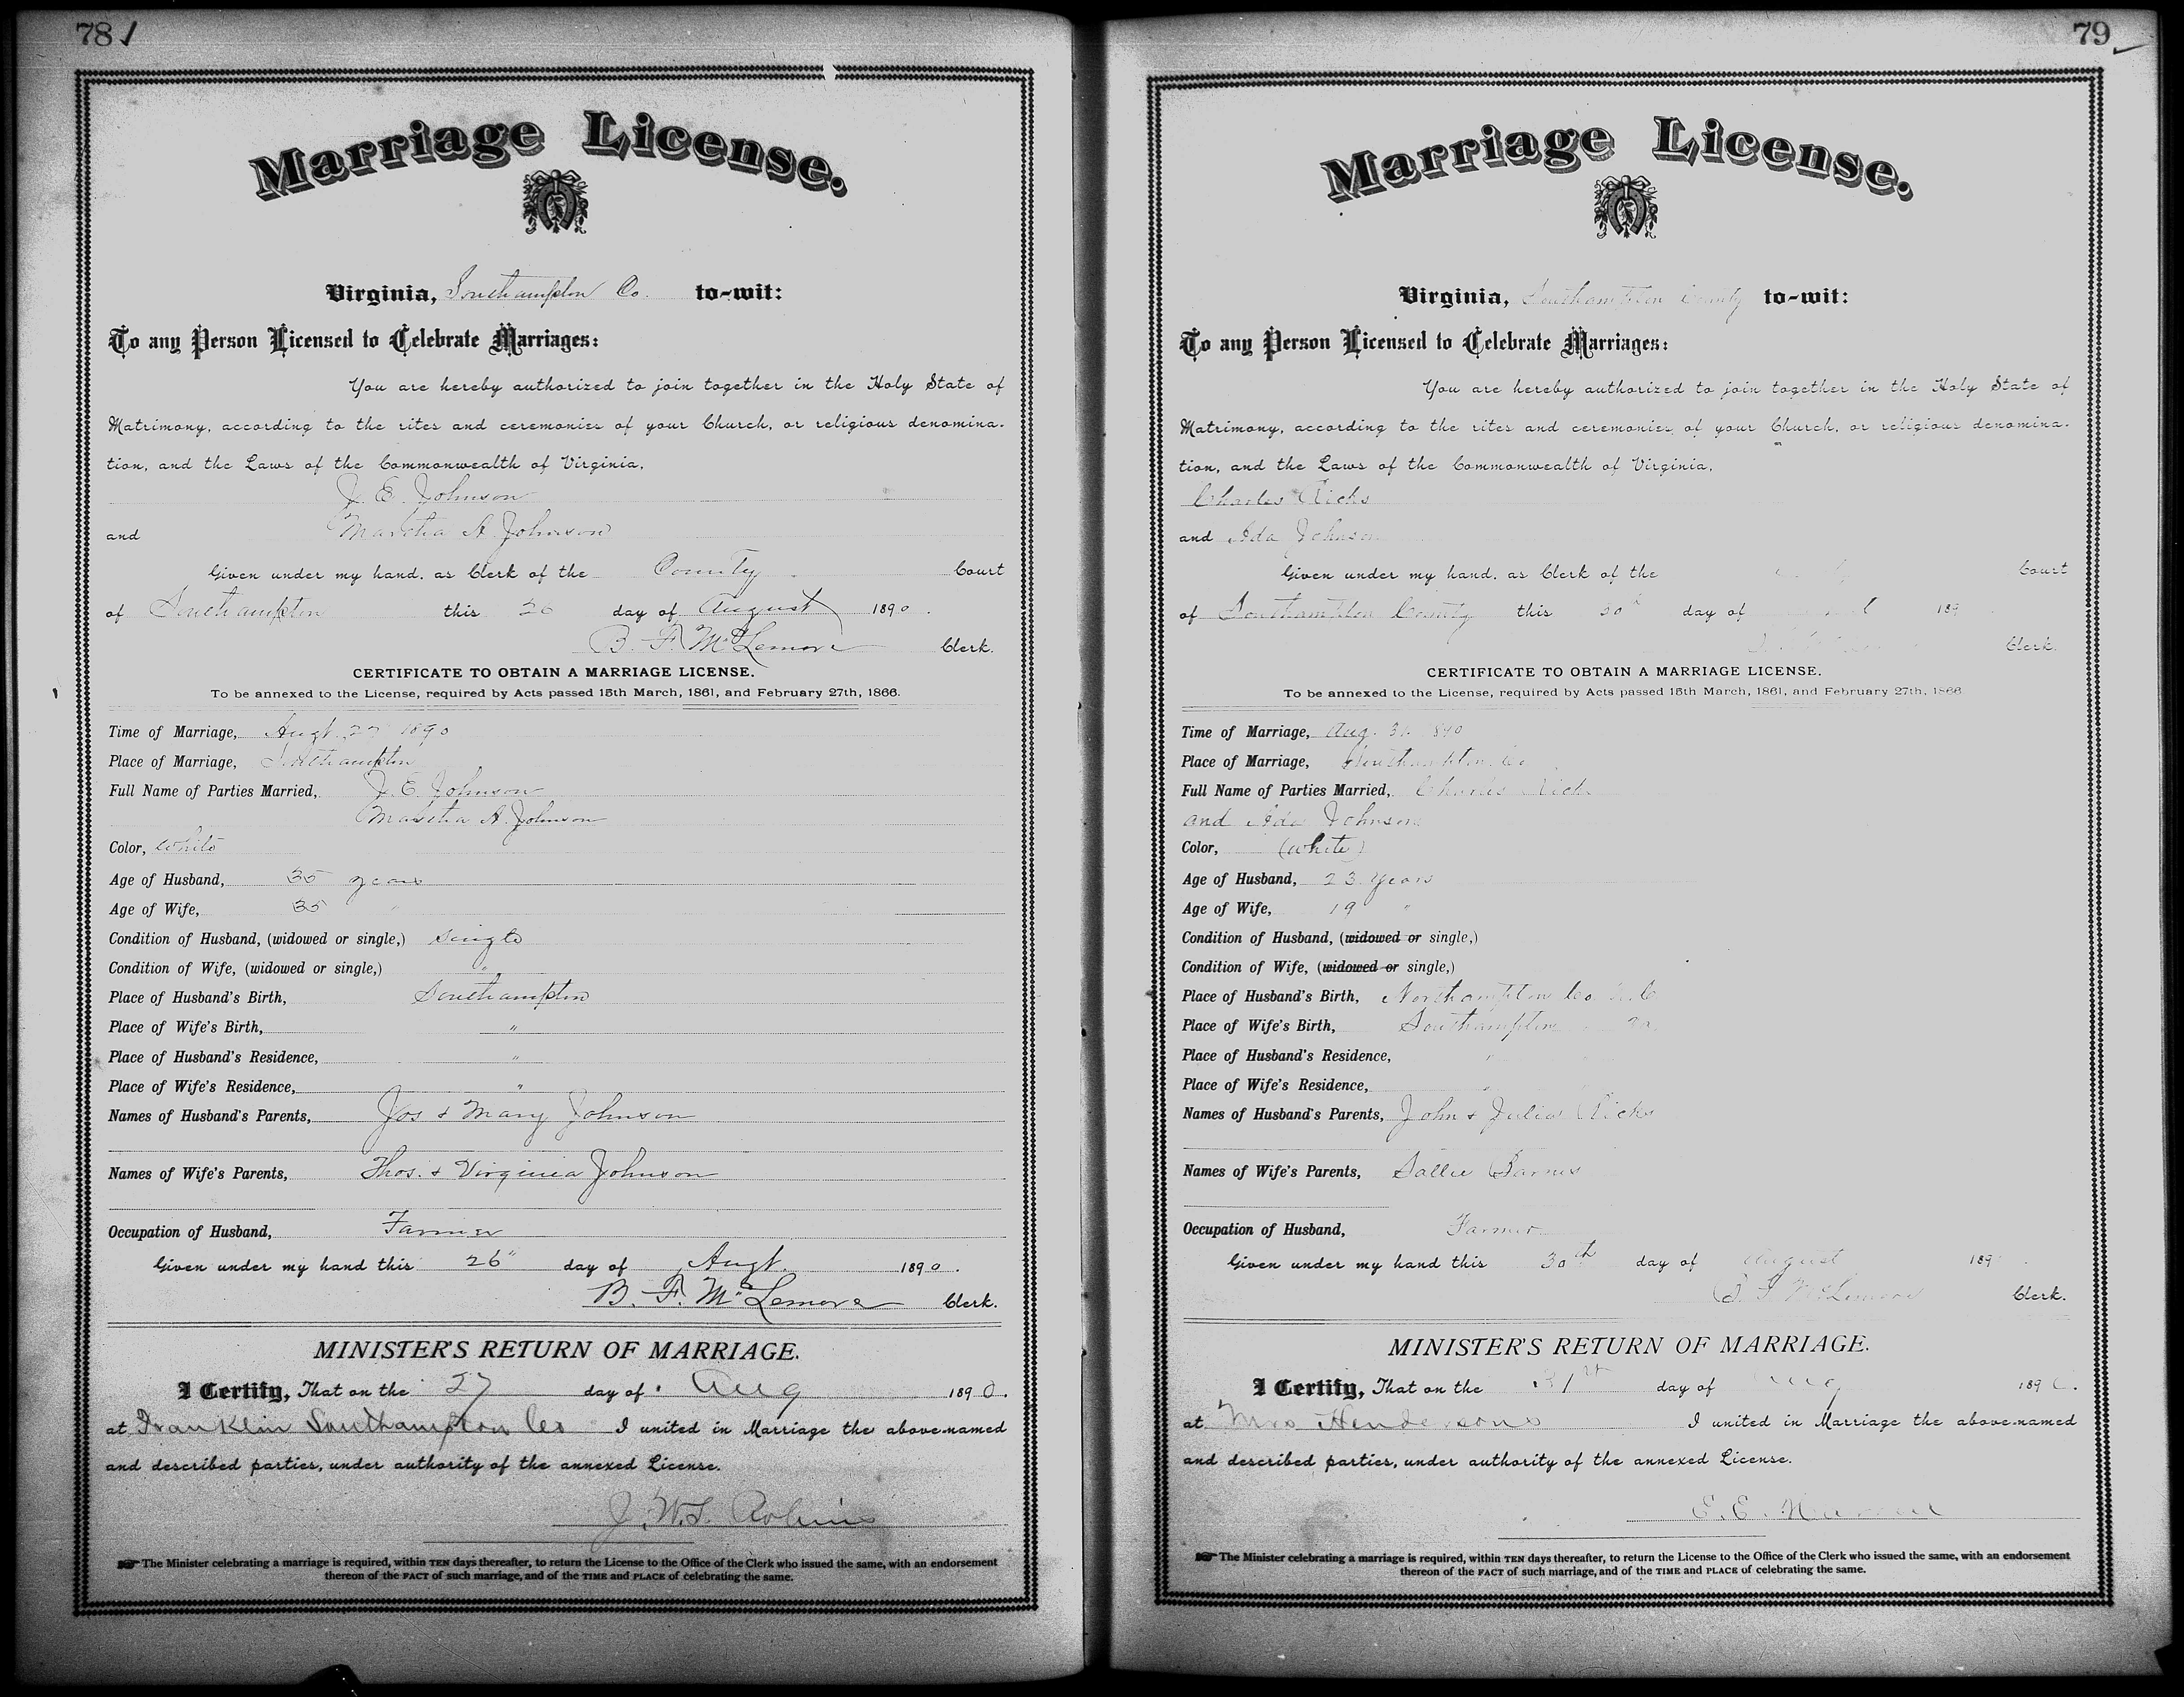 78
Marriage License.
Virginia, Southampton Co. to-wit:
To any Person Licensed to Celebrate Marriages:
You are hereby authorized to join together in the Holy State of
Matrimony, according to the rites and ceremonies of your Church, or religious denomina-
tion, and the Laws of the Commonwealth of Virginia,
J. E. Johnson
and Martha A. Johnson
Given under my hand, as Clerk of the County Court
of Southampton this 26 day of August 1890.
B. F. McLemore Clerk.
CERTIFICATE TO OBTAIN A MARRIAGE LICENSE.
To be annexed to the License, required by Acts passed 15th March, 1861, and February 27th, 1866.
Time of Marriage, Augt. 27 1890
Place of Marriage, Southampton
Full Name of Parties Married, J. E. Johnson
Martha A. Johnson
Color, White
Age of Husband, 35 years
Age of Wife, 35 "
Condition of Husband, (widowed or single,) Single
Condition of Wife, (widowed or single,) "
Place of Husband's Birth, Southampton
Place of Wife's Birth, "
Place of Husband's Residence, "
Place of Wife's Residence, "
Names of Husband's Parents, Jos & Mary Johnson
Names of Wife's Parents, Thos. & Virginia Johnson
Occupation of Husband, Farmer
Given under my hand this 26" day of Augt. 1890.
B. F. McLemore Clerk.
MINISTER'S RETURN OF MARRIAGE.
I Certify, That on the 27 day of Aug 1890.
at Franklin Southampton Co I united in Marriage the above-named
and described parties, under authority of the annexed License.
J. W. S. Robins
The Minister celebrating a marriage is required, within TEN days thereafter, to return the License to the Office of the Clerk who issued the same, with an endorsement
thereon of the FACT of such marriage, and of the TIME and PLACE of celebrating the same.
79
Marriage License.
Virginia, Southampton County to-wit:
To any Person Licensed to Celebrate Marriages:
You are hereby authorized to join together in the Holy State of
Matrimony, according to the rites and ceremonies of your Church, or religious denomina-
tion, and the Laws of the Commonwealth of Virginia,
Charles Ricks
and Ada Johnson
Given under my hand, as Clerk of the Court
of Southampton County this 30th day of 189
Clerk.
CERTIFICATE TO OBTAIN A MARRIAGE LICENSE.
To be annexed to the License, required by Acts passed 15th March, 1861, and February 27th, 1866
Time of Marriage, Aug. 31. 890
Place of Marriage, Southampton Co
Full Name of Parties Married, Charles Ricks
and Ada Johnson
Color, (White)
Age of Husband, 23 Years
Age of Wife, 19 "
Condition of Husband, (widowed or single,)
Condition of Wife, (widowed or single,)
Place of Husband's Birth, Northampton Co N.C
Place of Wife's Birth, Southampton Va.
Place of Husband's Residence, "
Place of Wife's Residence, "
Names of Husband's Parents, John & Julia Ricks
Names of Wife's Parents, Sallie Barnes
Occupation of Husband, Farmer
Given under my hand this 30th day of August 189
B. F. McLemore Clerk.
MINISTER'S RETURN OF MARRIAGE.
I Certify, That on the 31st day of Aug 1890.
at Mrs Hendersons I united in Marriage the above-named
and described parties, under authority of the annexed License.
E. E.
The Minister celebrating a marriage is required, within TEN days thereafter, to return the License to the Office of the Clerk who issued the same, with an endorsement
thereon of the FACT of such marriage, and of the TIME and PLACE of celebrating the same.